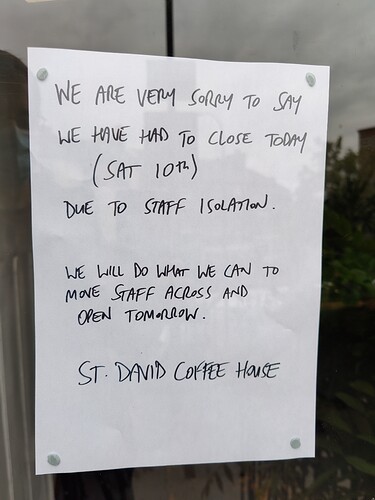 WE ARE VERY SORRY TO SAY
WE HAVE HAD TO CLOSE TODAY
(SAT 10th)
DUE TO STAFF ISOLATION.
WE WILL DO WHAT WE CAN TO
MOVE STAFF ACROSS AND
OPEN TOMORROW.
ST. DAVID COFFEE HOUSE